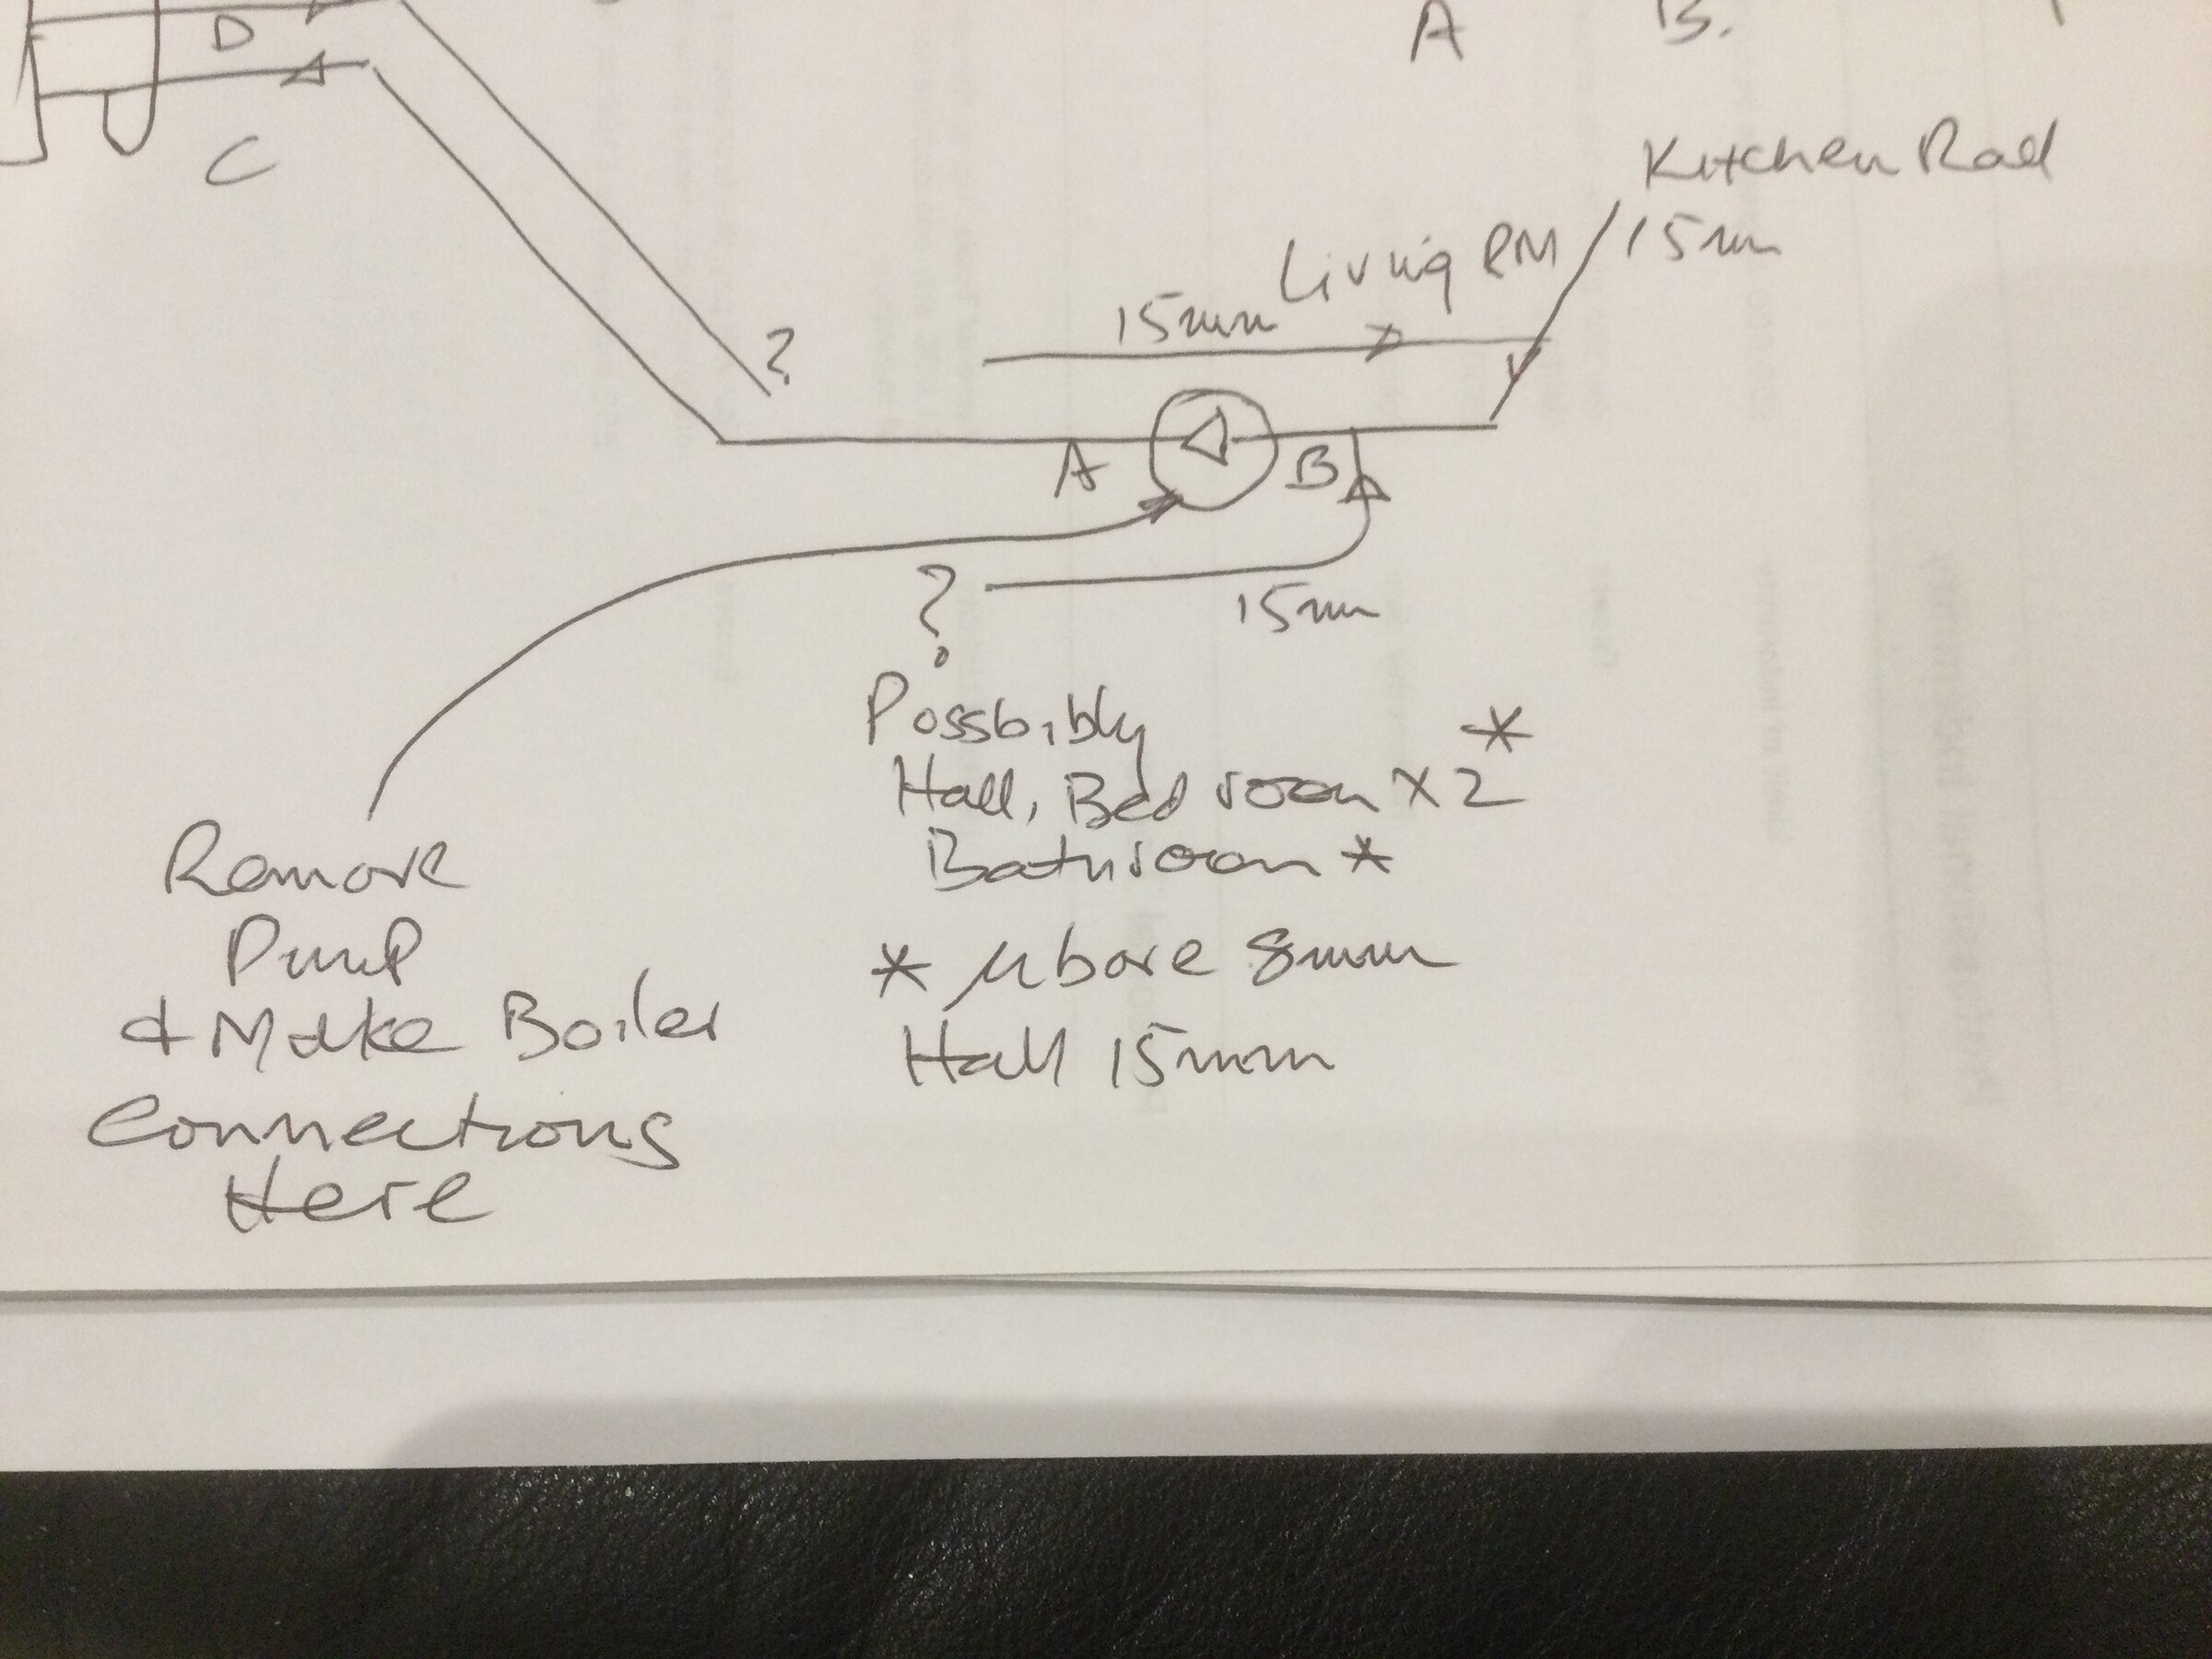 D
A B.
C
Kitchen Rad
15mm
Living RM
15mm
?
A B
?
15mm
Possbibly
Hall, Bedroom x 2 *
Bathroom *
* µbore 8mm
Hall 15mm
Remove
Pump
& Make Boiler
Connections
Here